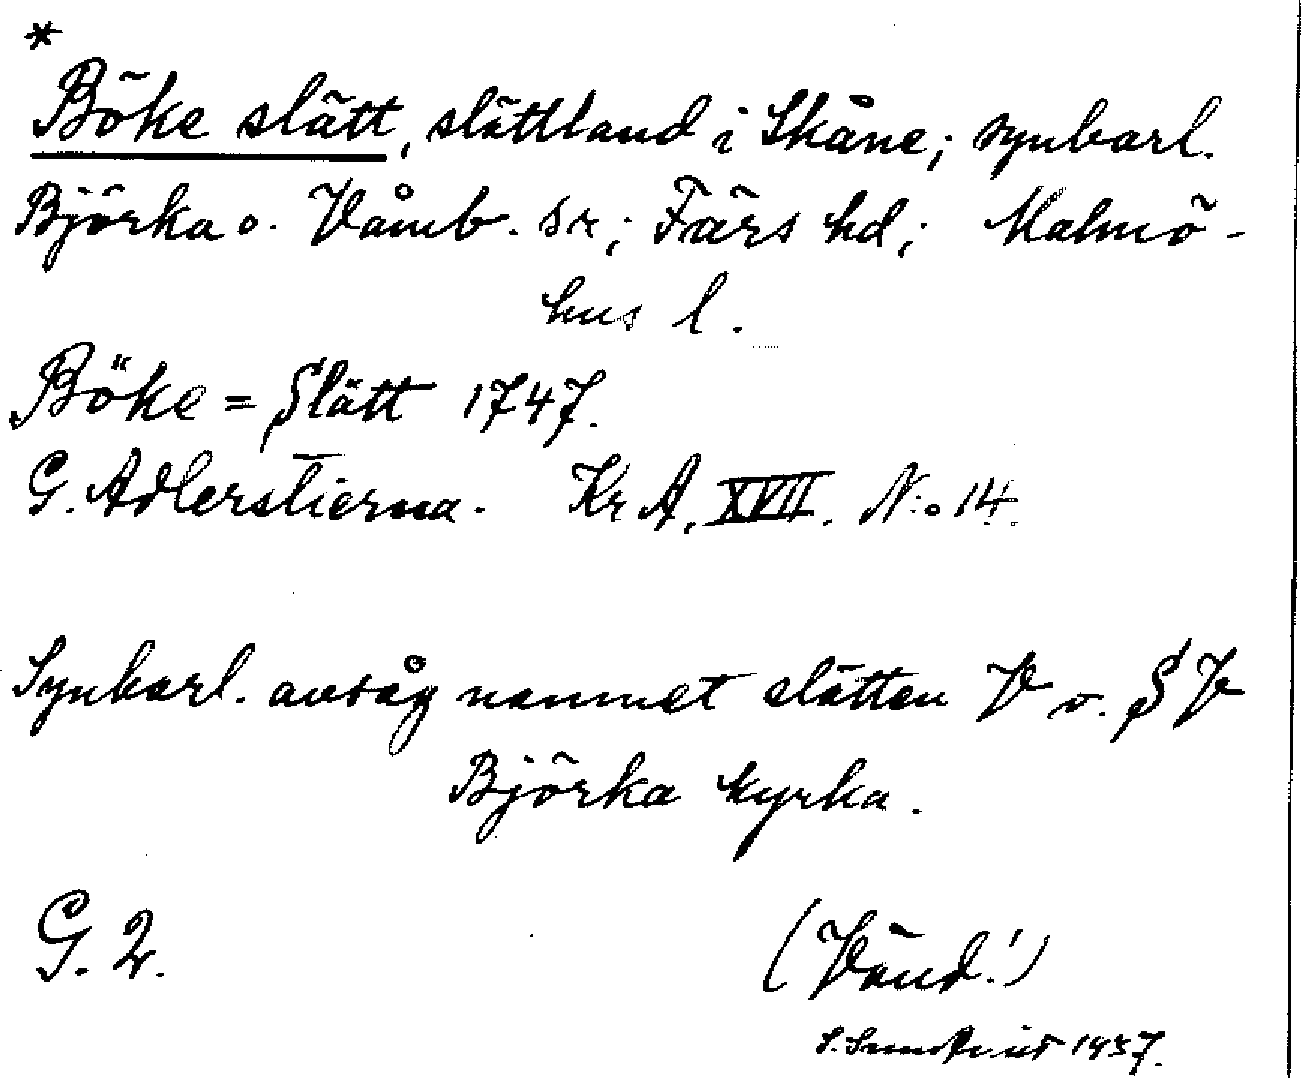 *
Böke slätt, slättland i Skåne; synbarl.
Björka o. Vämb. sr; Färs hd; Malmö-
hus l.
Böke = Slätt 1747.
G. Adlerstierna. Kr A, XVII. N:o 14.
Synbarl. avsåg namnet slätten V o. SV
Björka kyrka.
G. 2.
(Vänd!)
1937.